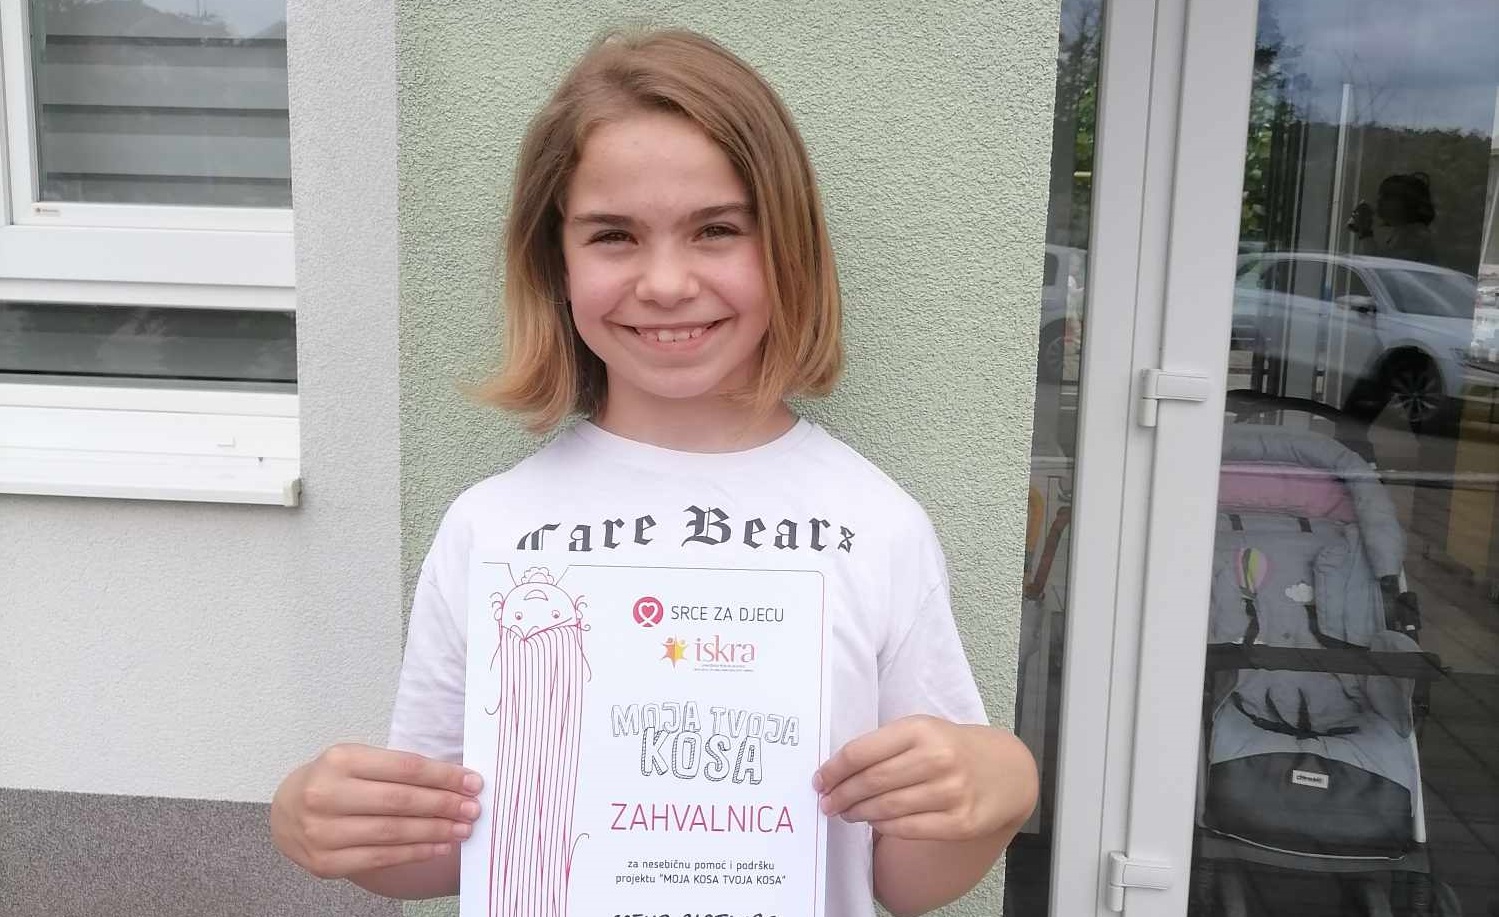 Care Bears
SRCE ZA DJECU
iskra
MOJA TVOJA
KOSA
ZAHVALNICA
za nesebičnu pomoć i podršku
projektu "MOJA KOSA TVOJA KOSA"